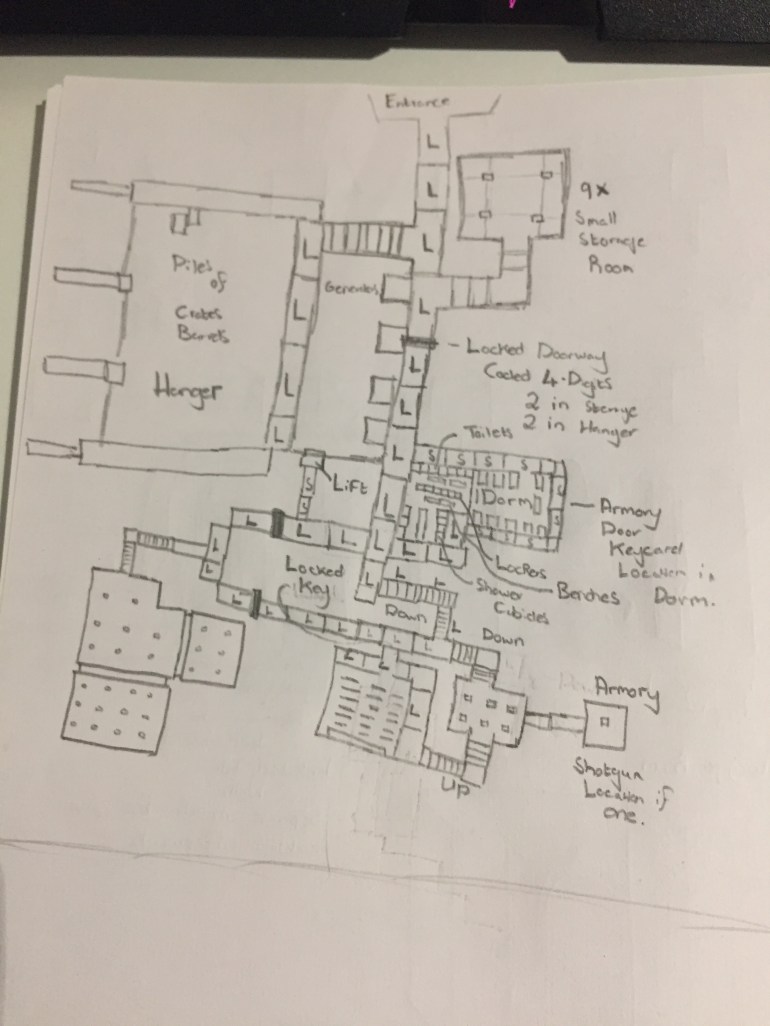 Entrance
L
L
L
L
9x
Small
Storage
Room
Piles
of
Crates
Barrels
Hanger
L
L
L
L
Locked Doorway
Coded 4-Digits
2 in Storage
2 in Hanger
L
L
L
Toilets
S S S S
Dorm
Armory
Door
Keycard
Location in
Dorm.
Lift
S
S
L
L
L
L
L
Locked
Key
Lockers
Benches
Shower
Cubicles
Down
Down
L
L
L
L
Armory
Shotgun
Location if
one.
UP